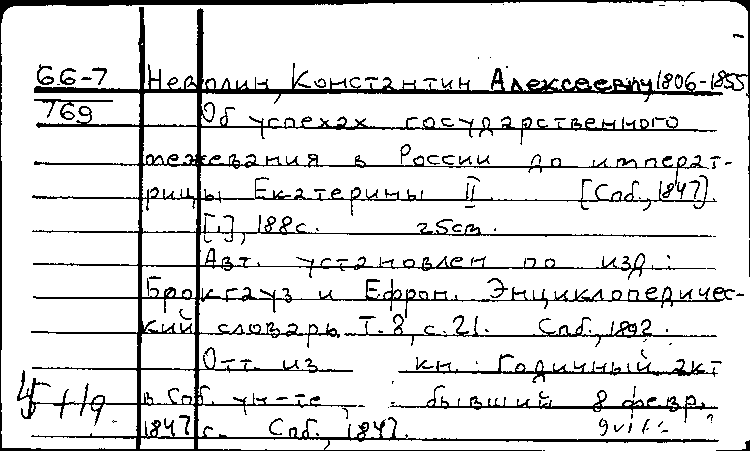 66-7 Неволин, Константин Алексеевич, 1806-1855
769 Об успехах государственного
межевания в России до императ-
рицы Екатерины II [Спб., 1847].
[1], 188с. 25см.
Авт. установлен по изд.:
Брокгауз и Ефрон. Энциклопедичес-
кий словарь Т.8, с.21. Спб., 1892.
Отт. из кн.: Годичный акт
в Спб. ун-те бывший 8 февр.
1847 г. Спб., 1847.